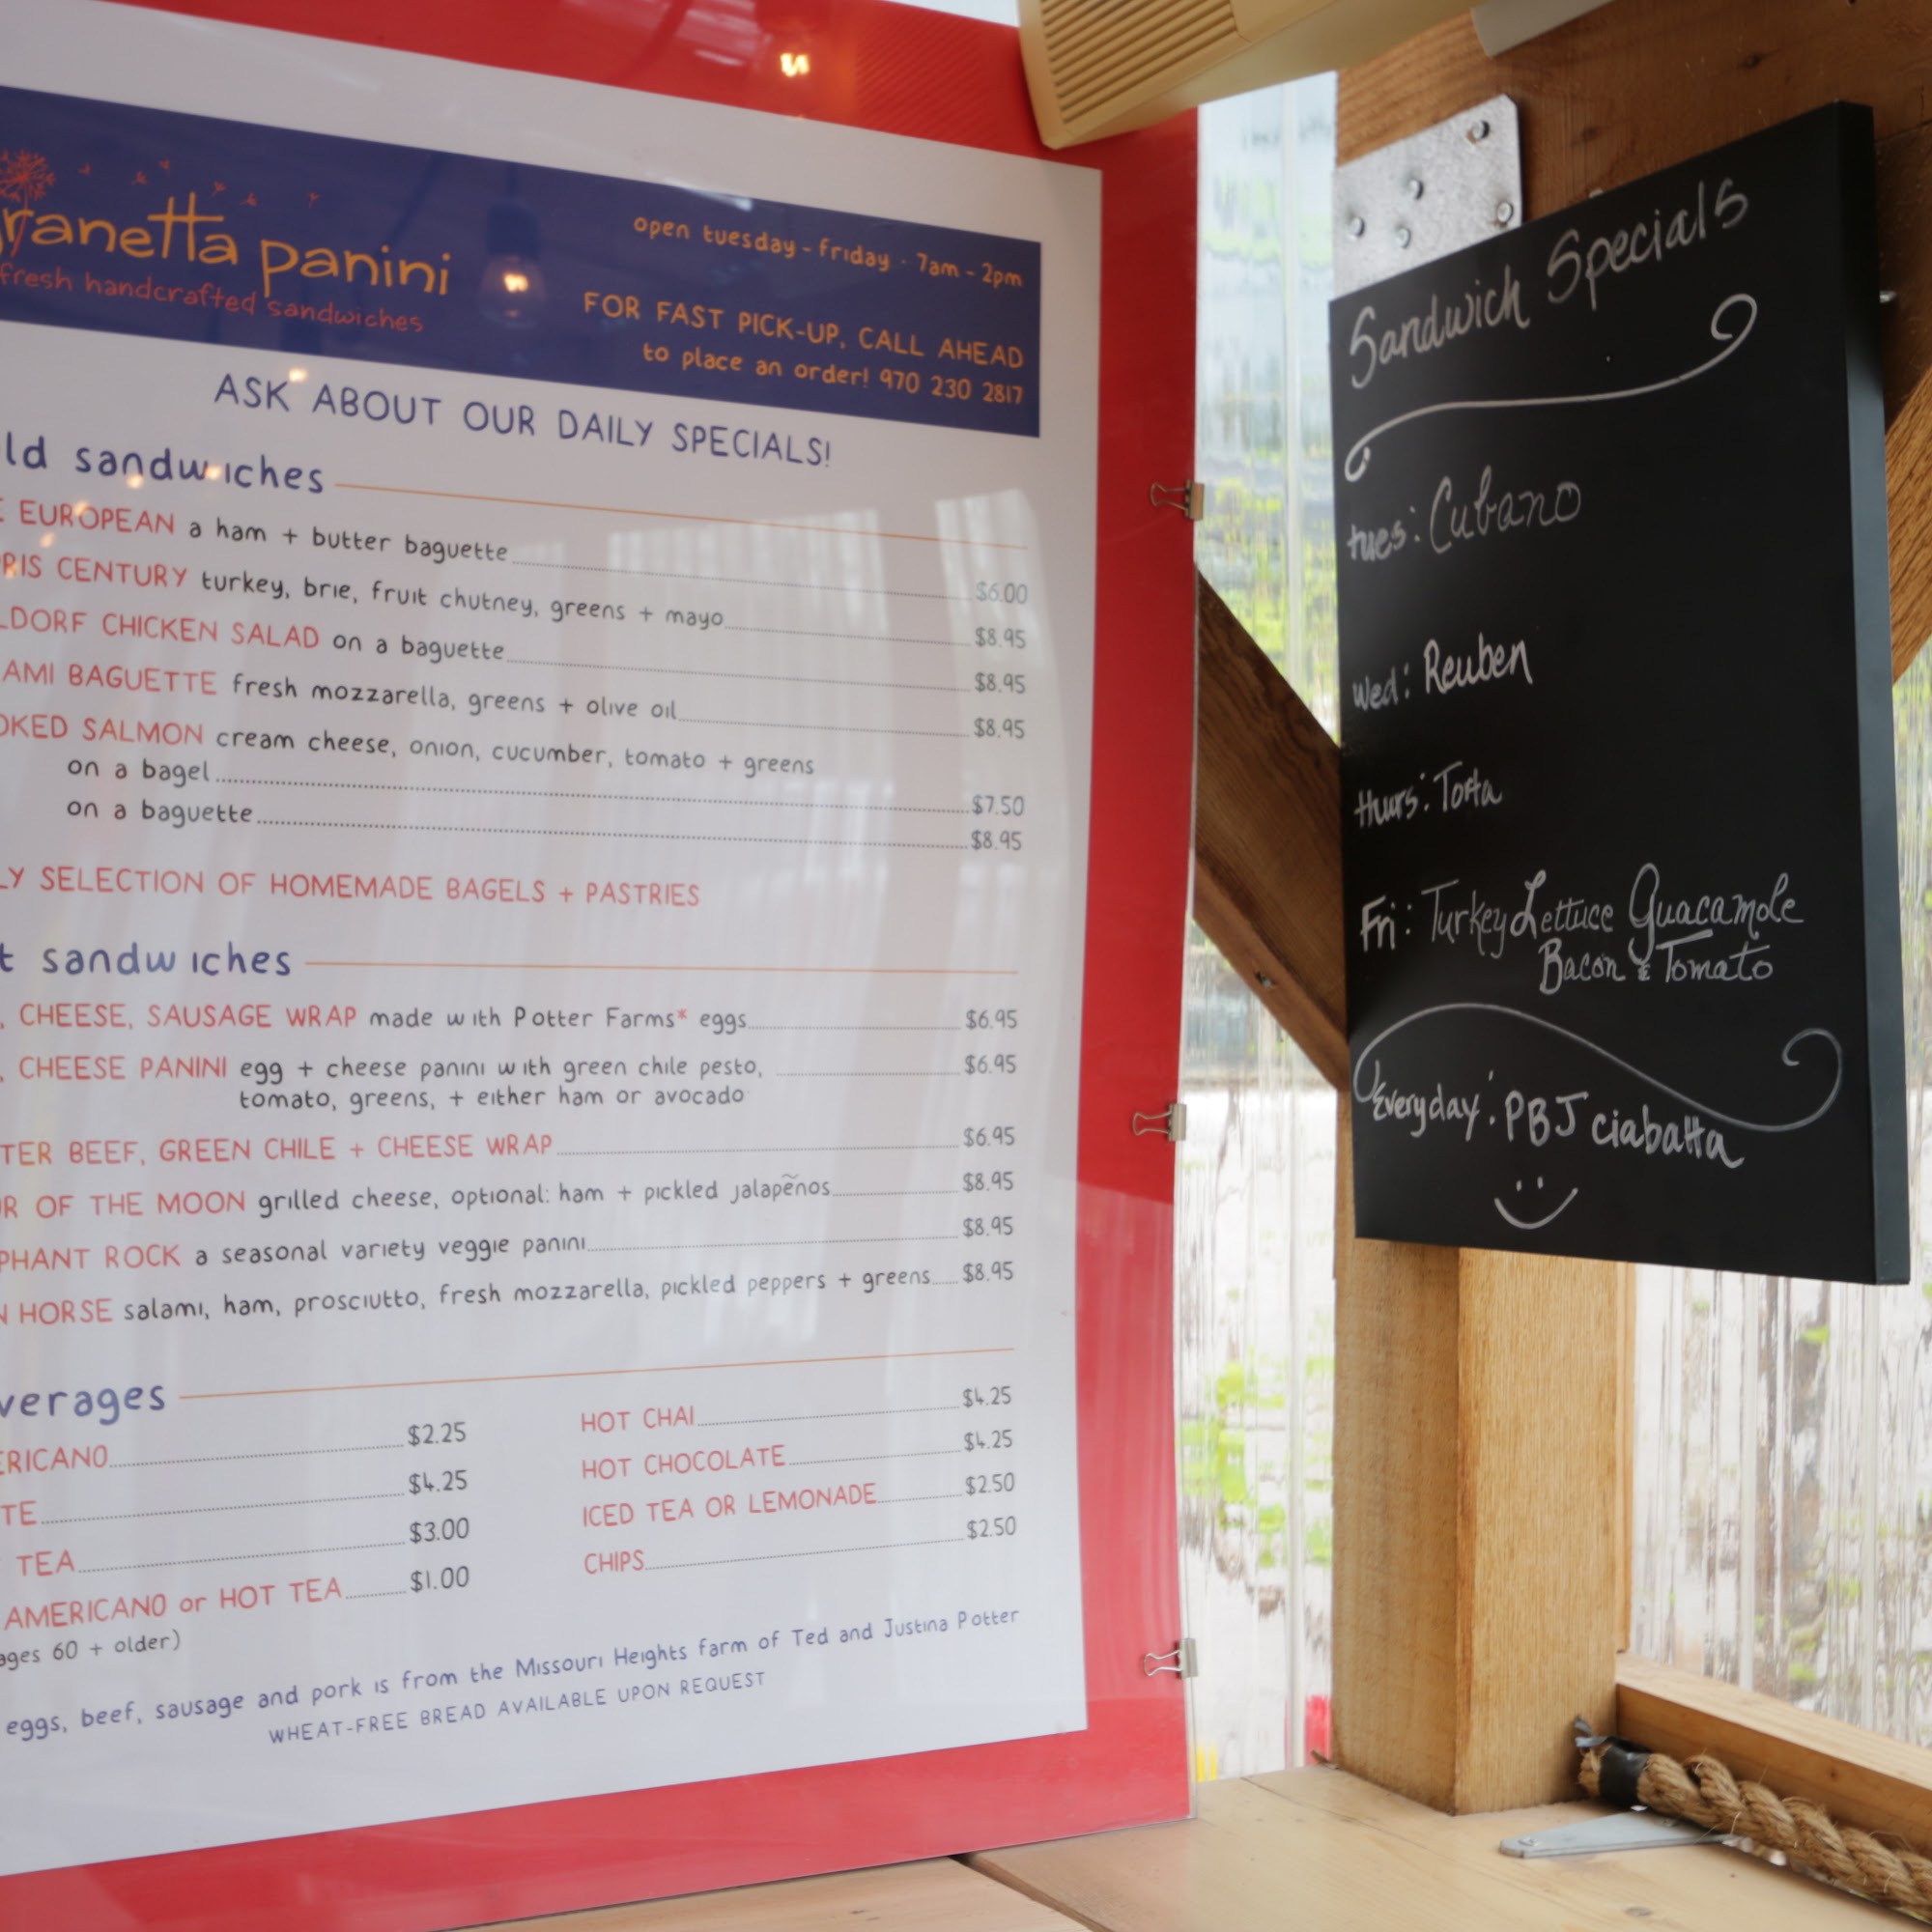 ranetta panini
fresh handcrafted sandwiches
open tuesday - friday · 7am - 2pm
FOR FAST PICK-UP, CALL AHEAD
to place an order! 970 230 2817
ASK ABOUT OUR DAILY SPECIALS!
ld sandwiches
E EUROPEAN a ham + butter baguette $6.00
RIS CENTURY turkey, brie, fruit chutney, greens + mayo $8.95
LDORF CHICKEN SALAD on a baguette $8.95
AMI BAGUETTE fresh mozzarella, greens + olive oil $8.95
OKED SALMON cream cheese, onion, cucumber, tomato + greens
on a bagel $7.50
on a baguette $8.95
LY SELECTION OF HOMEMADE BAGELS + PASTRIES
t sandwiches
, CHEESE, SAUSAGE WRAP made with Potter Farms* eggs $6.95
, CHEESE PANINI egg + cheese panini with green chile pesto, $6.95
tomato, greens, + either ham or avocado
TER BEEF, GREEN CHILE + CHEESE WRAP $6.95
R OF THE MOON grilled cheese, optional: ham + pickled jalapeños $8.95
PHANT ROCK a seasonal variety veggie panini $8.95
N HORSE salami, ham, prosciutto, fresh mozzarella, pickled peppers + greens $8.95
verages
ERICANO $2.25
TE $4.25
TEA $3.00
AMERICANO or HOT TEA $1.00
ages 60 + older)
HOT CHAI $4.25
HOT CHOCOLATE $4.25
ICED TEA OR LEMONADE $2.50
CHIPS $2.50
eggs, beef, sausage and pork is from the Missouri Heights farm of Ted and Justina Potter
WHEAT-FREE BREAD AVAILABLE UPON REQUEST
Sandwich Specials
tues: Cubano
wed: Reuben
thurs: Torta
Fri: Turkey Lettuce Guacamole
Bacon & Tomato
Everyday: PBJ ciabatta